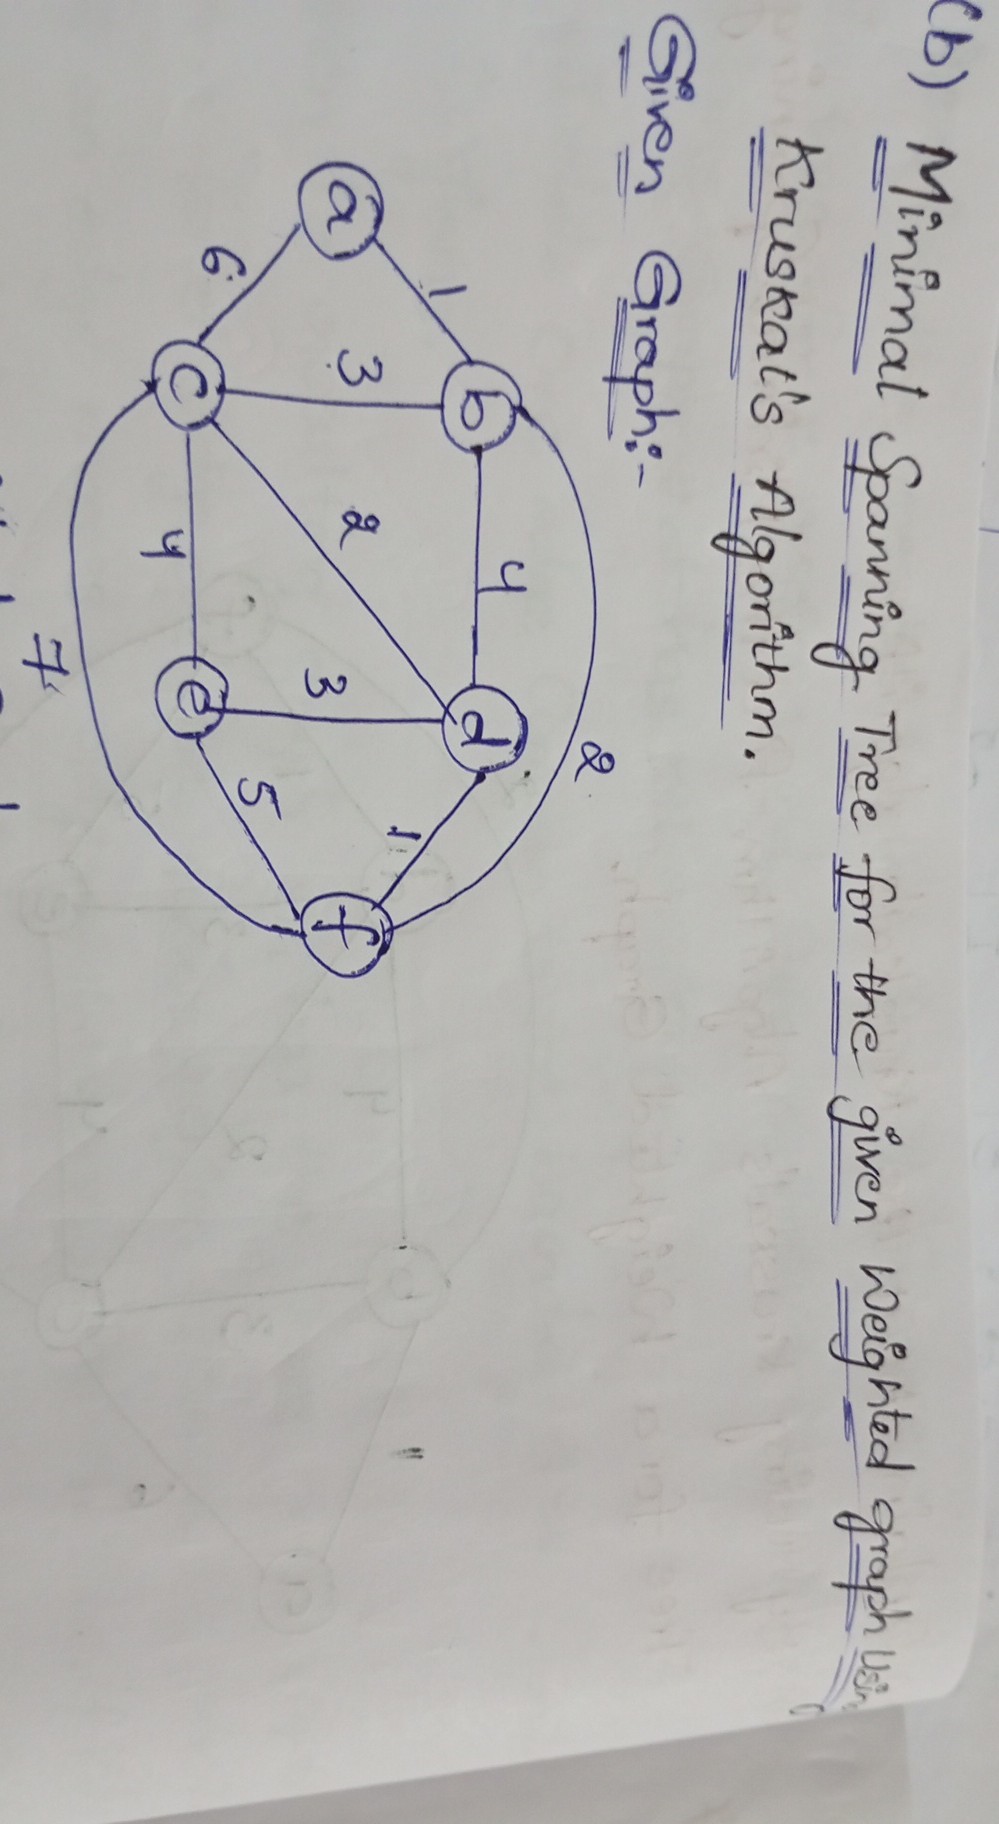 (b) Minimal Spanning Tree for the given Weighted graph using
Kruskal's Algorithm.
Given Graph:-
2
b 4 d
1 1
a 3 2 3 f
6 5
c 4 e
7